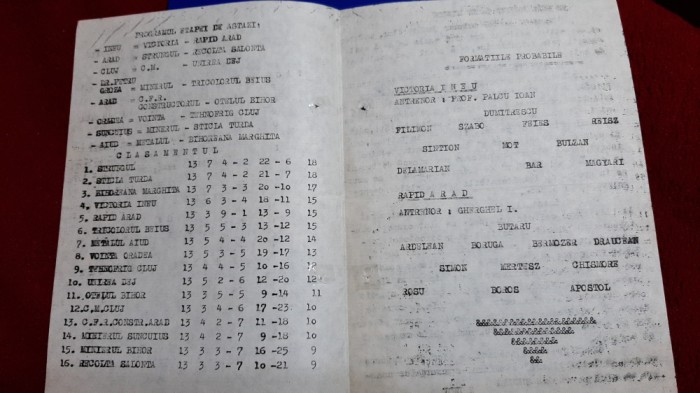 PROGRAMUL ETAPEI DE ASTAZI:
- INEU = VICTORIA - RAPID ARAD
- ARAD = STRUNGUL - RECOLTA SALONTA
- CLUJ = C.M. - UNIREA DEJ
- DR.PETRU
GROZA = MINERUL - TRICOLORUL BEIUS
- ARAD = C.F.R.
CONSTRUCTORUL - OTELUL BIHOR
- ORADEA = VOINTA - TEHNOFRIG CLUJ
- SUNCUIUS = MINERUL - STICLA TURDA
- AIUD = METALUL - BIHOREANA MARGHITA
C L A S A M E N T U L
1. STRUNGUL 13 7 4 - 2 22 - 6 18
2. STICLA TURDA 13 7 4 - 2 21 - 7 18
3. BIHOREANA MARGHITA 13 7 3 - 3 2o -1o 17
4. VICTORIA INEU 13 6 3 - 4 18 -11 15
5. RAPID ARAD 13 3 9 - 1 13 - 9 15
6. TRICOLORUL BEIUS 13 5 5 - 3 13 -12 15
7. METALUL AIUD 13 5 4 - 4 2o -12 14
8. VOINTA ORADEA 13 5 3 - 5 19 -17 13
9. TEHNOFRIG CLUJ 13 4 4 - 5 1o -16 12
1o. UNIREA DEJ 13 5 2 - 6 12 -2o 12
11. OTELUL BIHOR 13 3 5 - 5 9 -14 11
12.C.M.CLUJ 13 3 4 - 6 17 -23 1o
13. C.F.R.CONSTR.ARAD 13 4 2 - 7 11 -18 1o
14. MINIERUL SUNCUIUS 13 4 2 - 7 9 -18 1o
15. MINIERUL BIHOR 13 3 3 - 7 16 -25 9
16. RECOLTA SALONTA 13 3 3 - 7 1o -21 9
FORMATIILE PROBABILE
VICTORIA I N E U
ANTRENOR : PROF. PALCU IOAN
DUMITRESCU
FILIMON SZABO FEIES REISZ
SINTION MOT BULZAN
DELAMARIAN BAR MAGYARI
RAPID A R A D
ANTRENOR : GHERGHEL I.
BUTARU
ARDELEAN BORUGA BERMOZER DRAUCEAN
SIMON MERTESZ CHISMORE
ROSU BOROS APOSTOL